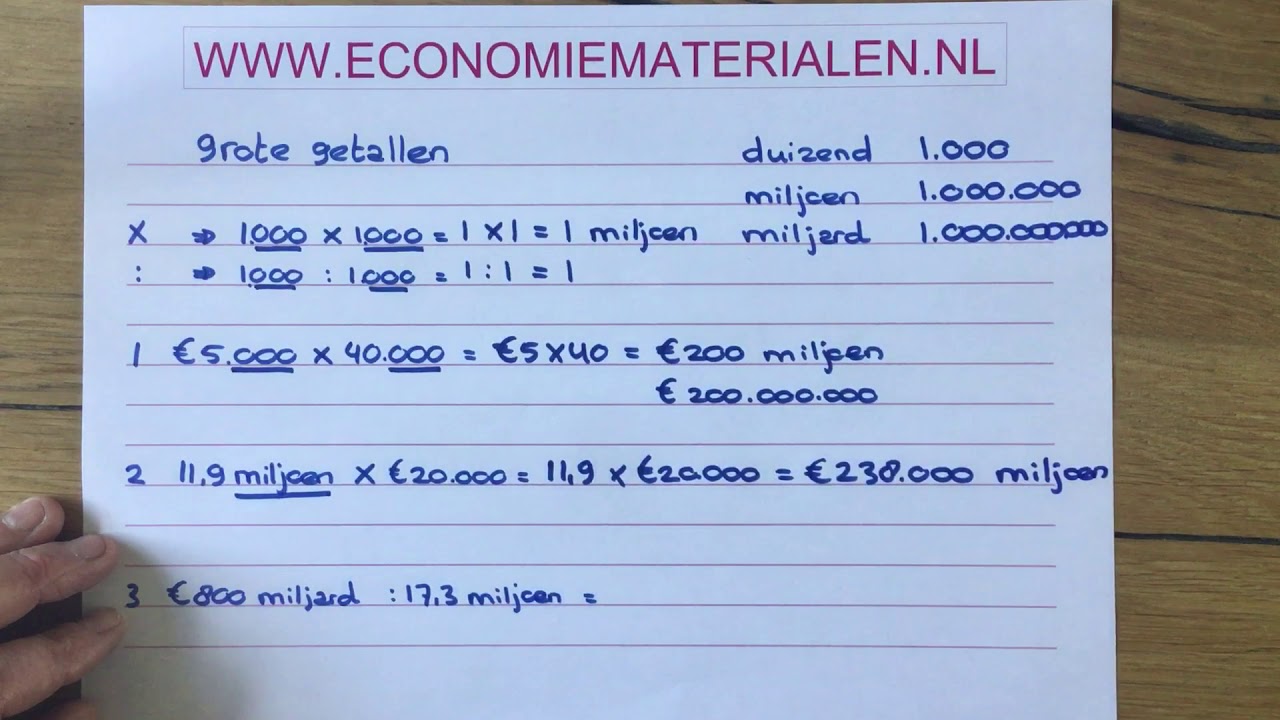 WWW.ECONOMIEMATERIALEN.NL
grote getallen duizend 1.000
miljoen 1.000.000
x ⇒ 1.000 x 1.000 = 1 x 1 = 1 miljoen miljard 1.000.000.000
: ⇒ 1.000 : 1.000 = 1 : 1 = 1
1 €5.000 x 40.000 = €5x40 = €200 miljoen
€ 200.000.000
2 11,9 miljoen x €20.000 = 11,9 x €20.000 = €238.000 miljoen
3 €800 miljard : 17,3 miljoen =